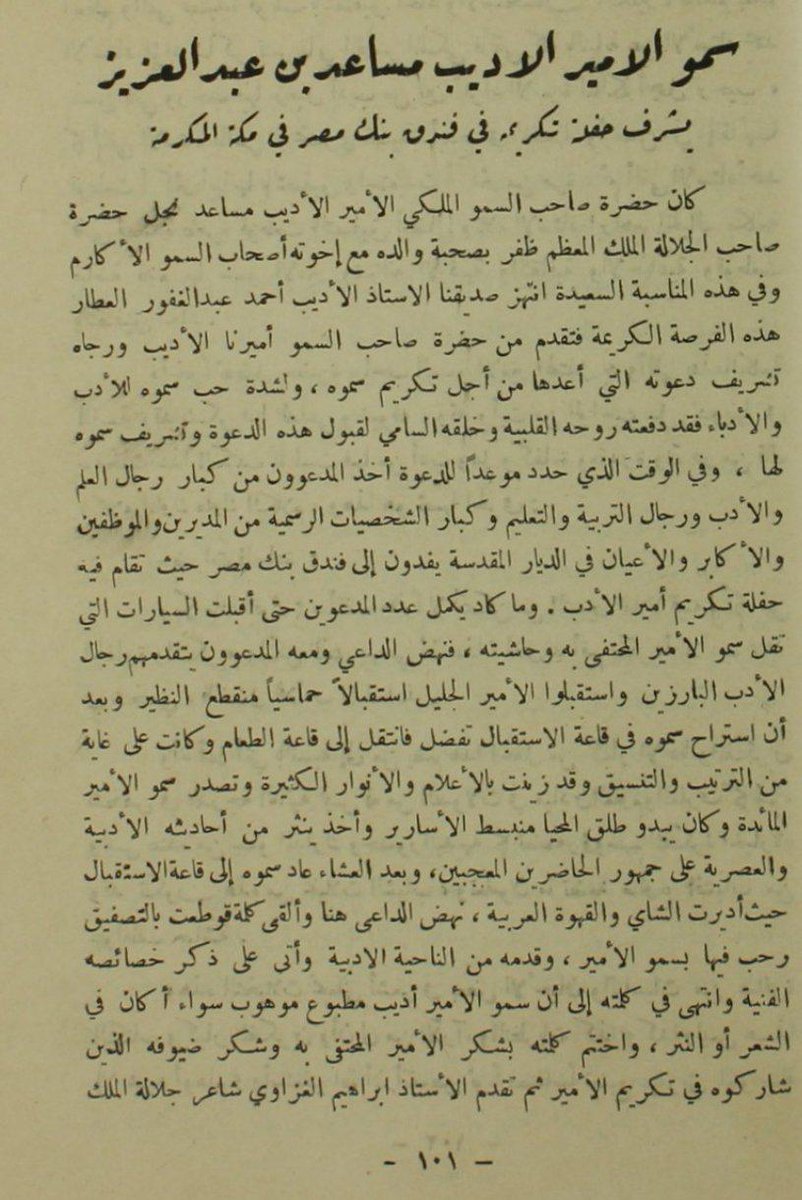 سمو الامير الاديب مساعد بن عبد العزيز
يشرف حفلة تكريمه في فندق بنك مصر في مكة المكرمة
كان حضرة صاحب السمو الملكي الأمير الأديب مساعد نجل حضرة
صاحب الجلالة الملك المعظم ظفر بصحبة والده مع إخوته أصحاب السمو الأكارم
وفي هذه المناسبة السعيدة انتهز صديقنا الاستاذ الأديب أحمد عبدالغفور العطار
هذه الفرصة الكريمة فتقدم من حضرة صاحب السمو أميرنا الأديب ورجاه
تشريف دعوته التي أعدها من أجل تكريم سموه ، ولشدة حب سموه للأدب
والأدباء فقد دفعته روحه القلبية وخلقه السامي لقبول هذه الدعوة وتشريف سموه
لها ، وفي الوقت الذي حدد موعداً للدعوة أخذ المدعوون من كبار رجال العلم
والأدب ورجال التربية والتعليم وكبار الشخصيات الرسمية من المديرين والموظفين
والأكابر والأعيان في الديار المقدسة يفدون إلى فندق بنك مصر حيث تقام فيه
حفلة تكريم أمير الأدب . وما كاد يكمل عدد المدعوين حتى أقبلت السيارات التي
تقل سمو الأمير المحتفى به وحاشيته ، فنهض الداعي ومعه المدعوون يتقدمهم رجال
الأدب البارزين واستقبلوا الأمير الجليل استقبالاً حماسياً منقطع النظير وبعد
أن استراح سموه في قاعة الاستقبال تفضل فانتقل إلى قاعة الطعام وكانت على غاية
من الترتيب والتنسيق وقد زينت بالأعلام والأنوار الكثيرة وتصدر سمو الأمير
المائدة وكان يبدو طلق المحيا منبسط الأسارير وأخذ ينثر من أحاديثه الأدبية
والعصرية على جمهور الحاضرين المعجبين، وبعد العشاء عاد سموه إلى قاعة الاستقبال
حيث أديرت الشاي والقهوة العربية ، نهض الداعى هنا وألقى كلمة قوطعت بالتصفيق
رحب فيها بسمو الأمير ، وقدمه من الناحية الادبية وأتى على ذكر خصائصه
الفنية وانتهى في كلمته إلى أن سمو الأمير أديب مطبوع موهوب سواء أكان في
الشعر أو النثر ، واختتم كلمته بشكر الأمير المحتفى به وشكر ضيوفه الذين
شاركوه في تكريم الأمير ثم تقدم الأستاذ ابراهيم الغزاوي شاعر جلالة الملك
- ١٠١ -